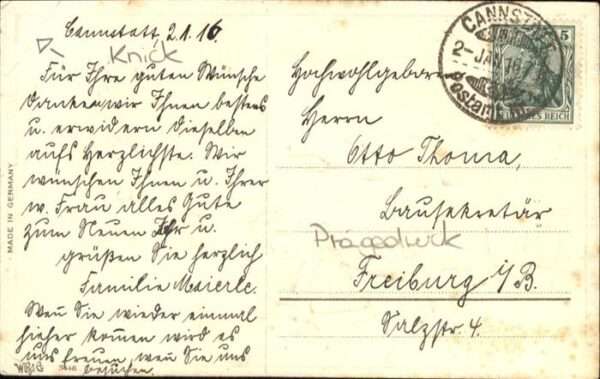 Cannstatt, 2.1.16.
Knick
Für Ihre guten Wünsche
danken wir Ihnen bestens
u. erwidern dieselben
aufs Herzlichste. Wir
wünschen Ihnen u. Ihrer
w. Frau alles Gute
zum Neuen Jhr u.
grüßen Sie herzlich
Familie Maierle.
Wen Sie wieder einmal
hieher komen wird es
uns freuen, wen Sie uns
besuchen.
MADE IN GERMANY
WB&G
CANNSTATT
2-JAN.16.
Postamt
5
DEUTSCHES REICH
Hochwohlgeboren
Herrn
Otto Thoma,
Bausekretär
Prägedruck
Freiburg i/B.
Salzstr. 4.